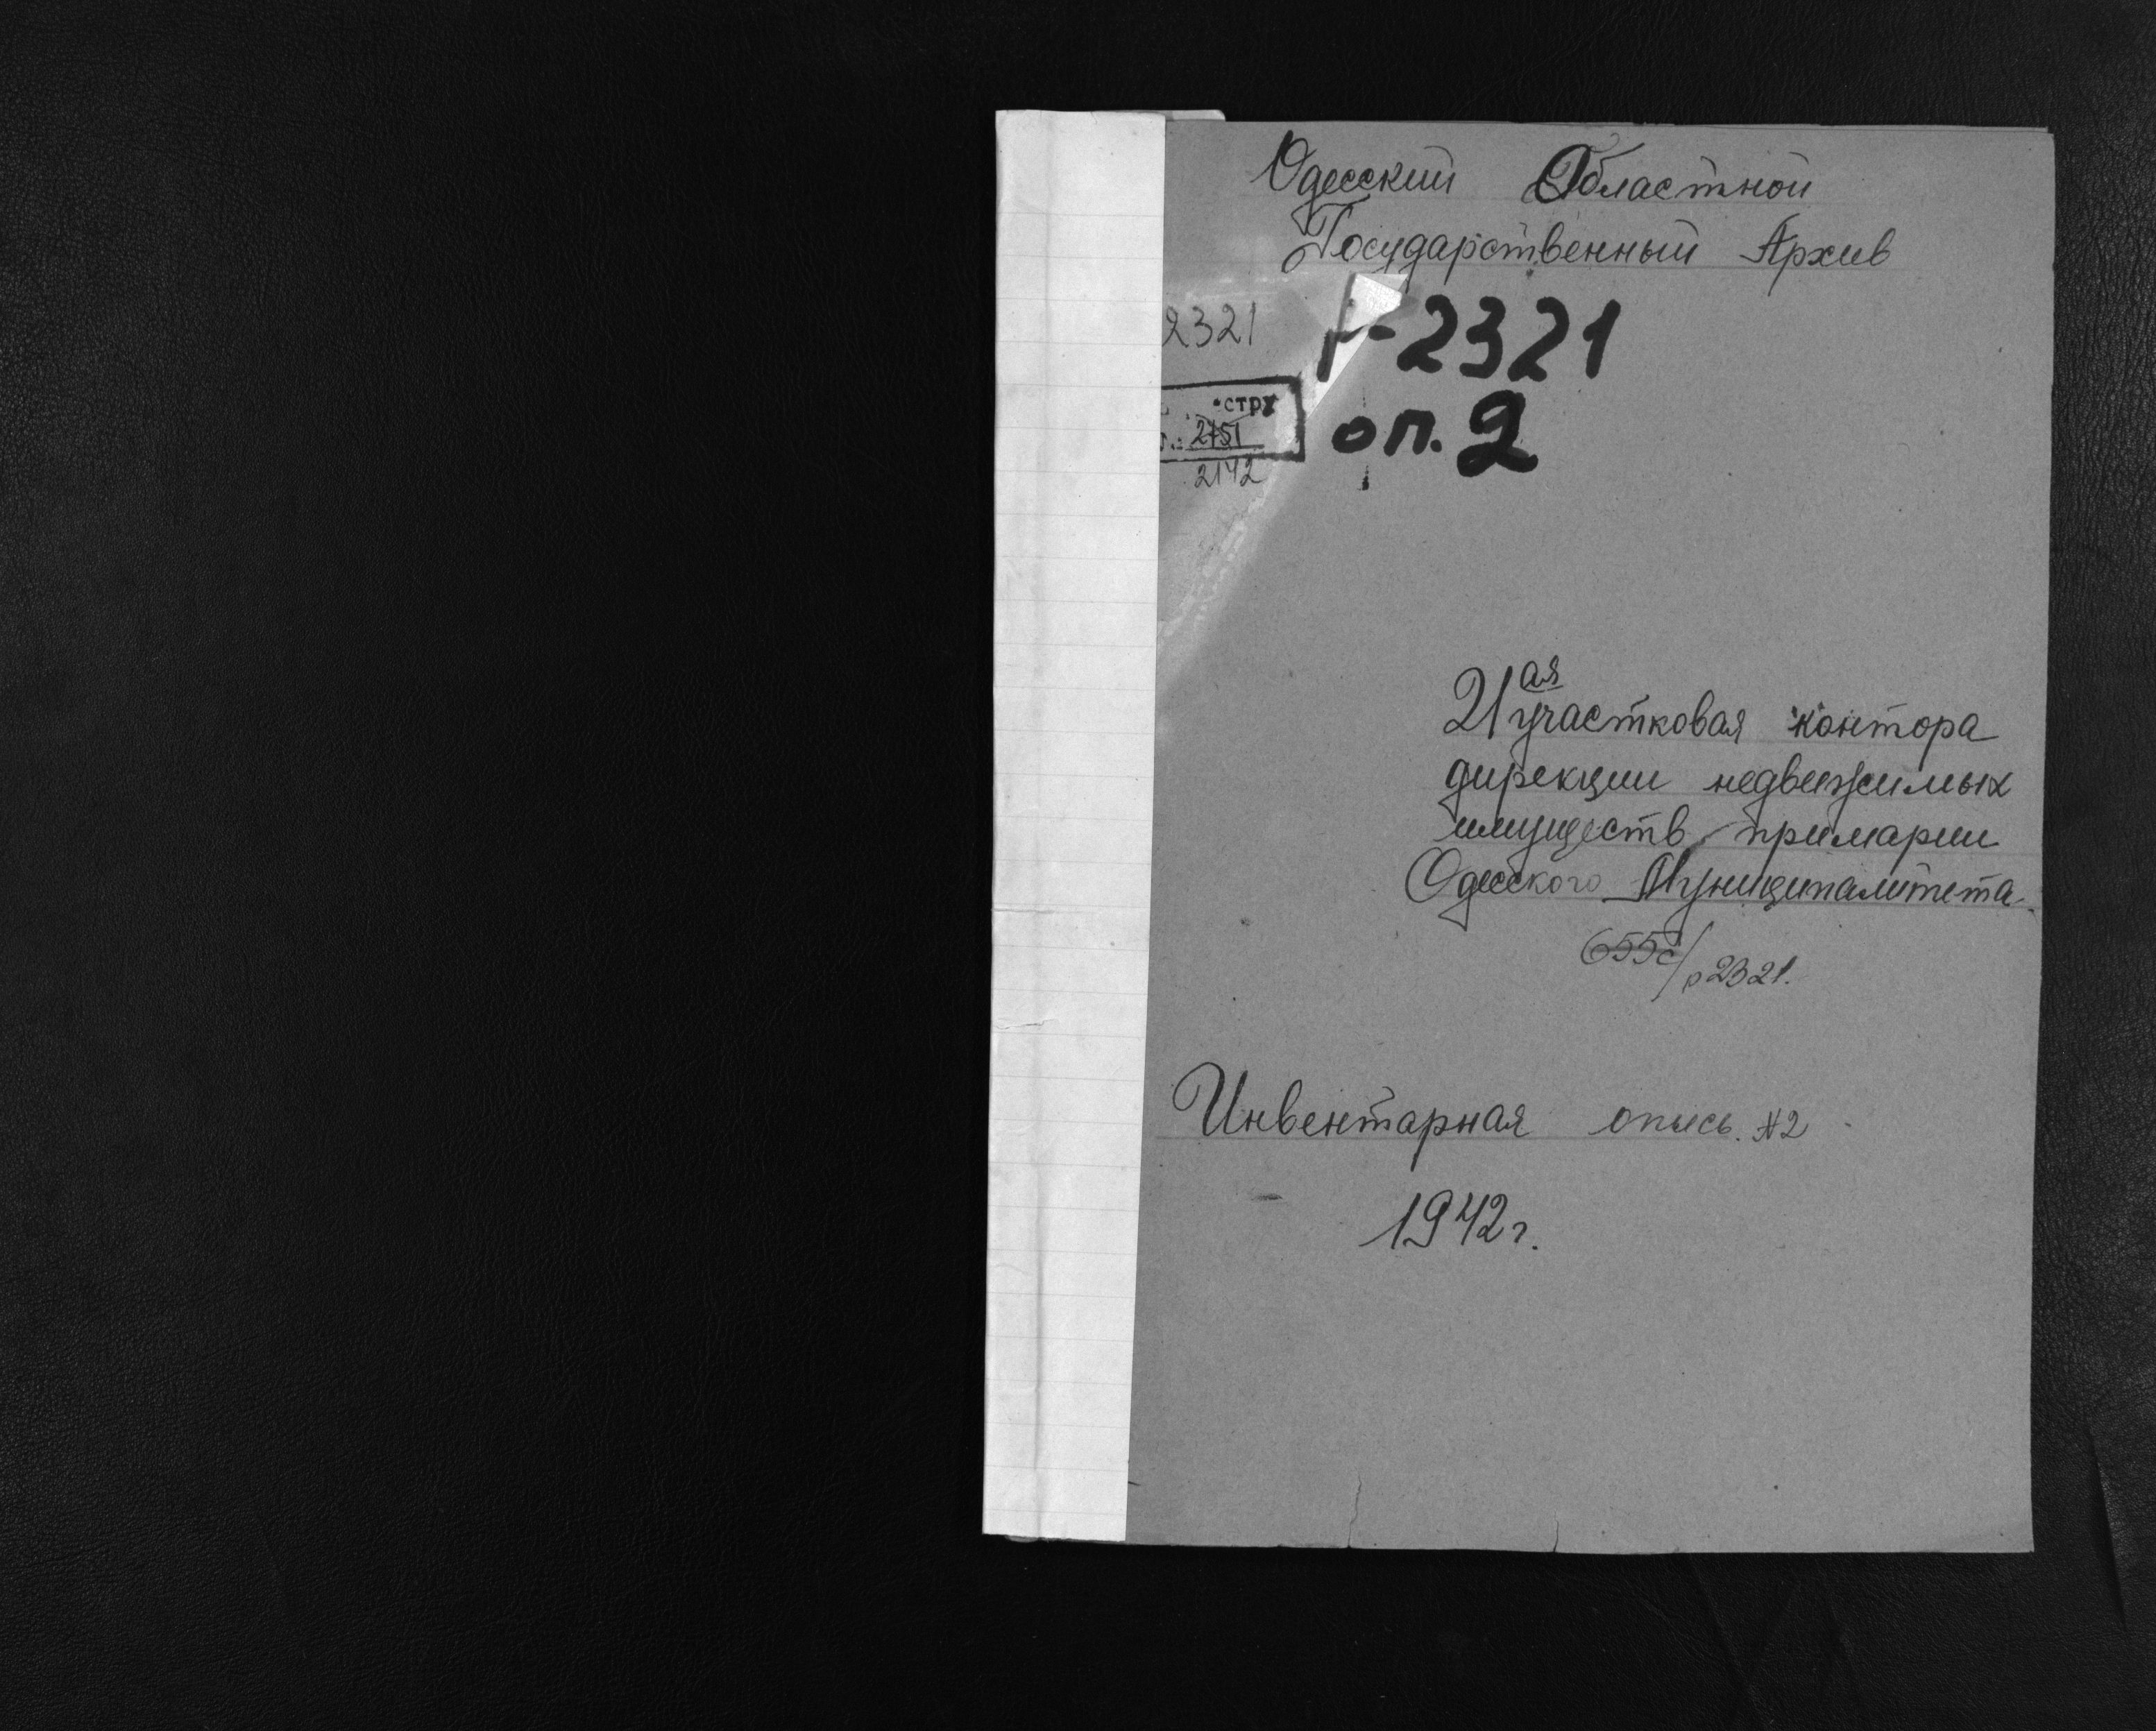 Одесский Областной
Государственный Архив
2321
р-2321
оп. 2
стру
2751
2142
21ая участковая контора
дирекции недвижимых
имуществ примарии
Одесского Муниципалитета.
655с/р2321.
Инвентарная опись. №2
1942г.